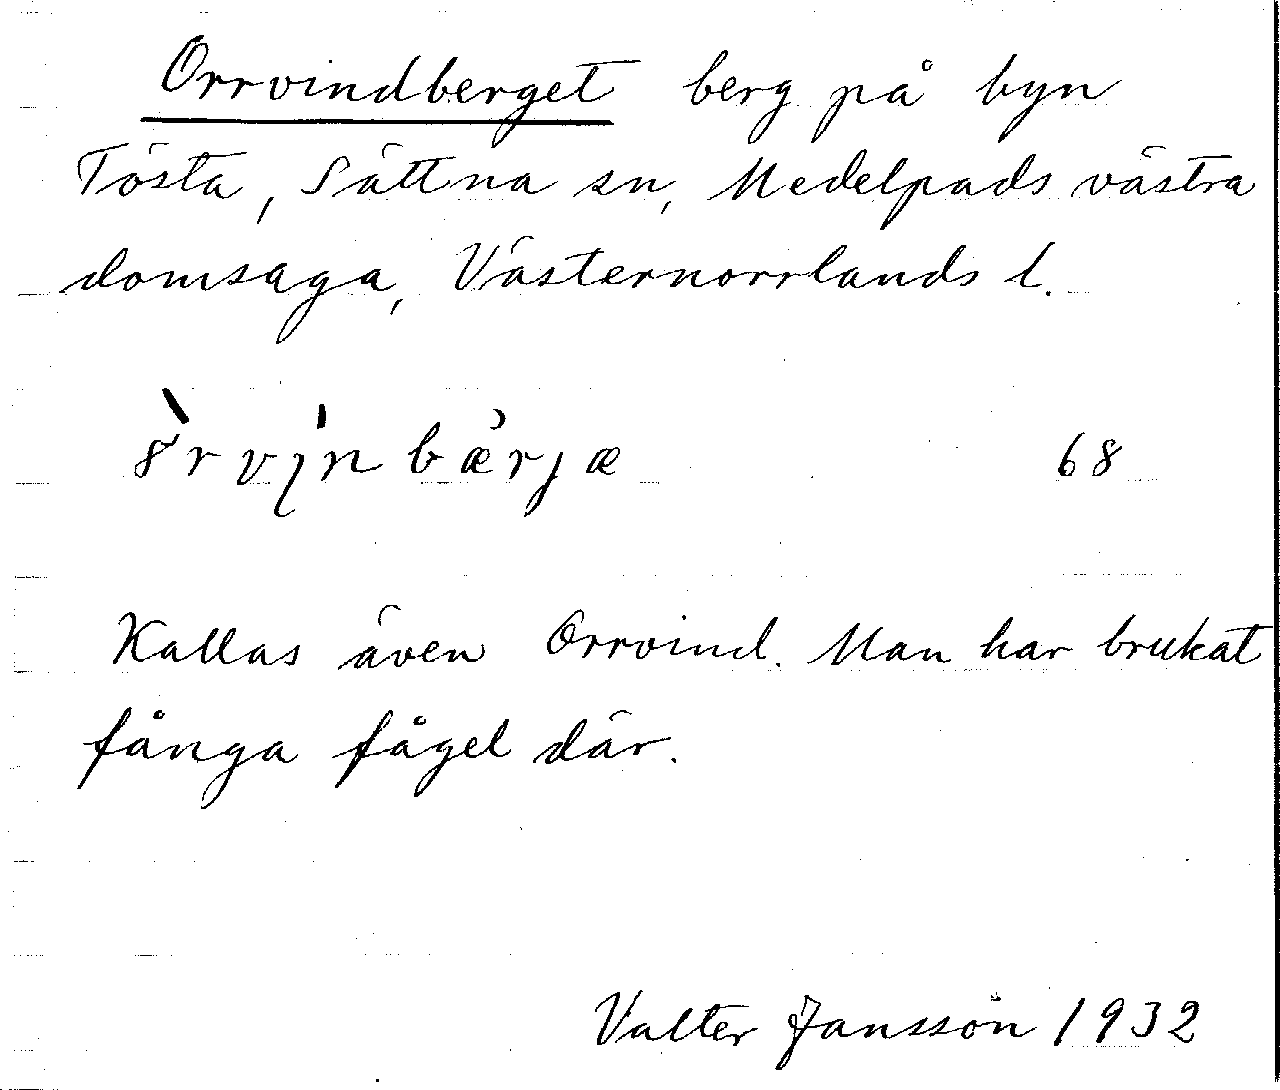 Orrvindberget berg på byn
Tösta, Sättna sn, Medelpads västra
domsaga, Västernorrlands l.
68
Kallas även Orrvind. Man har brukat
fånga fågel där.
Valter Jansson 1932